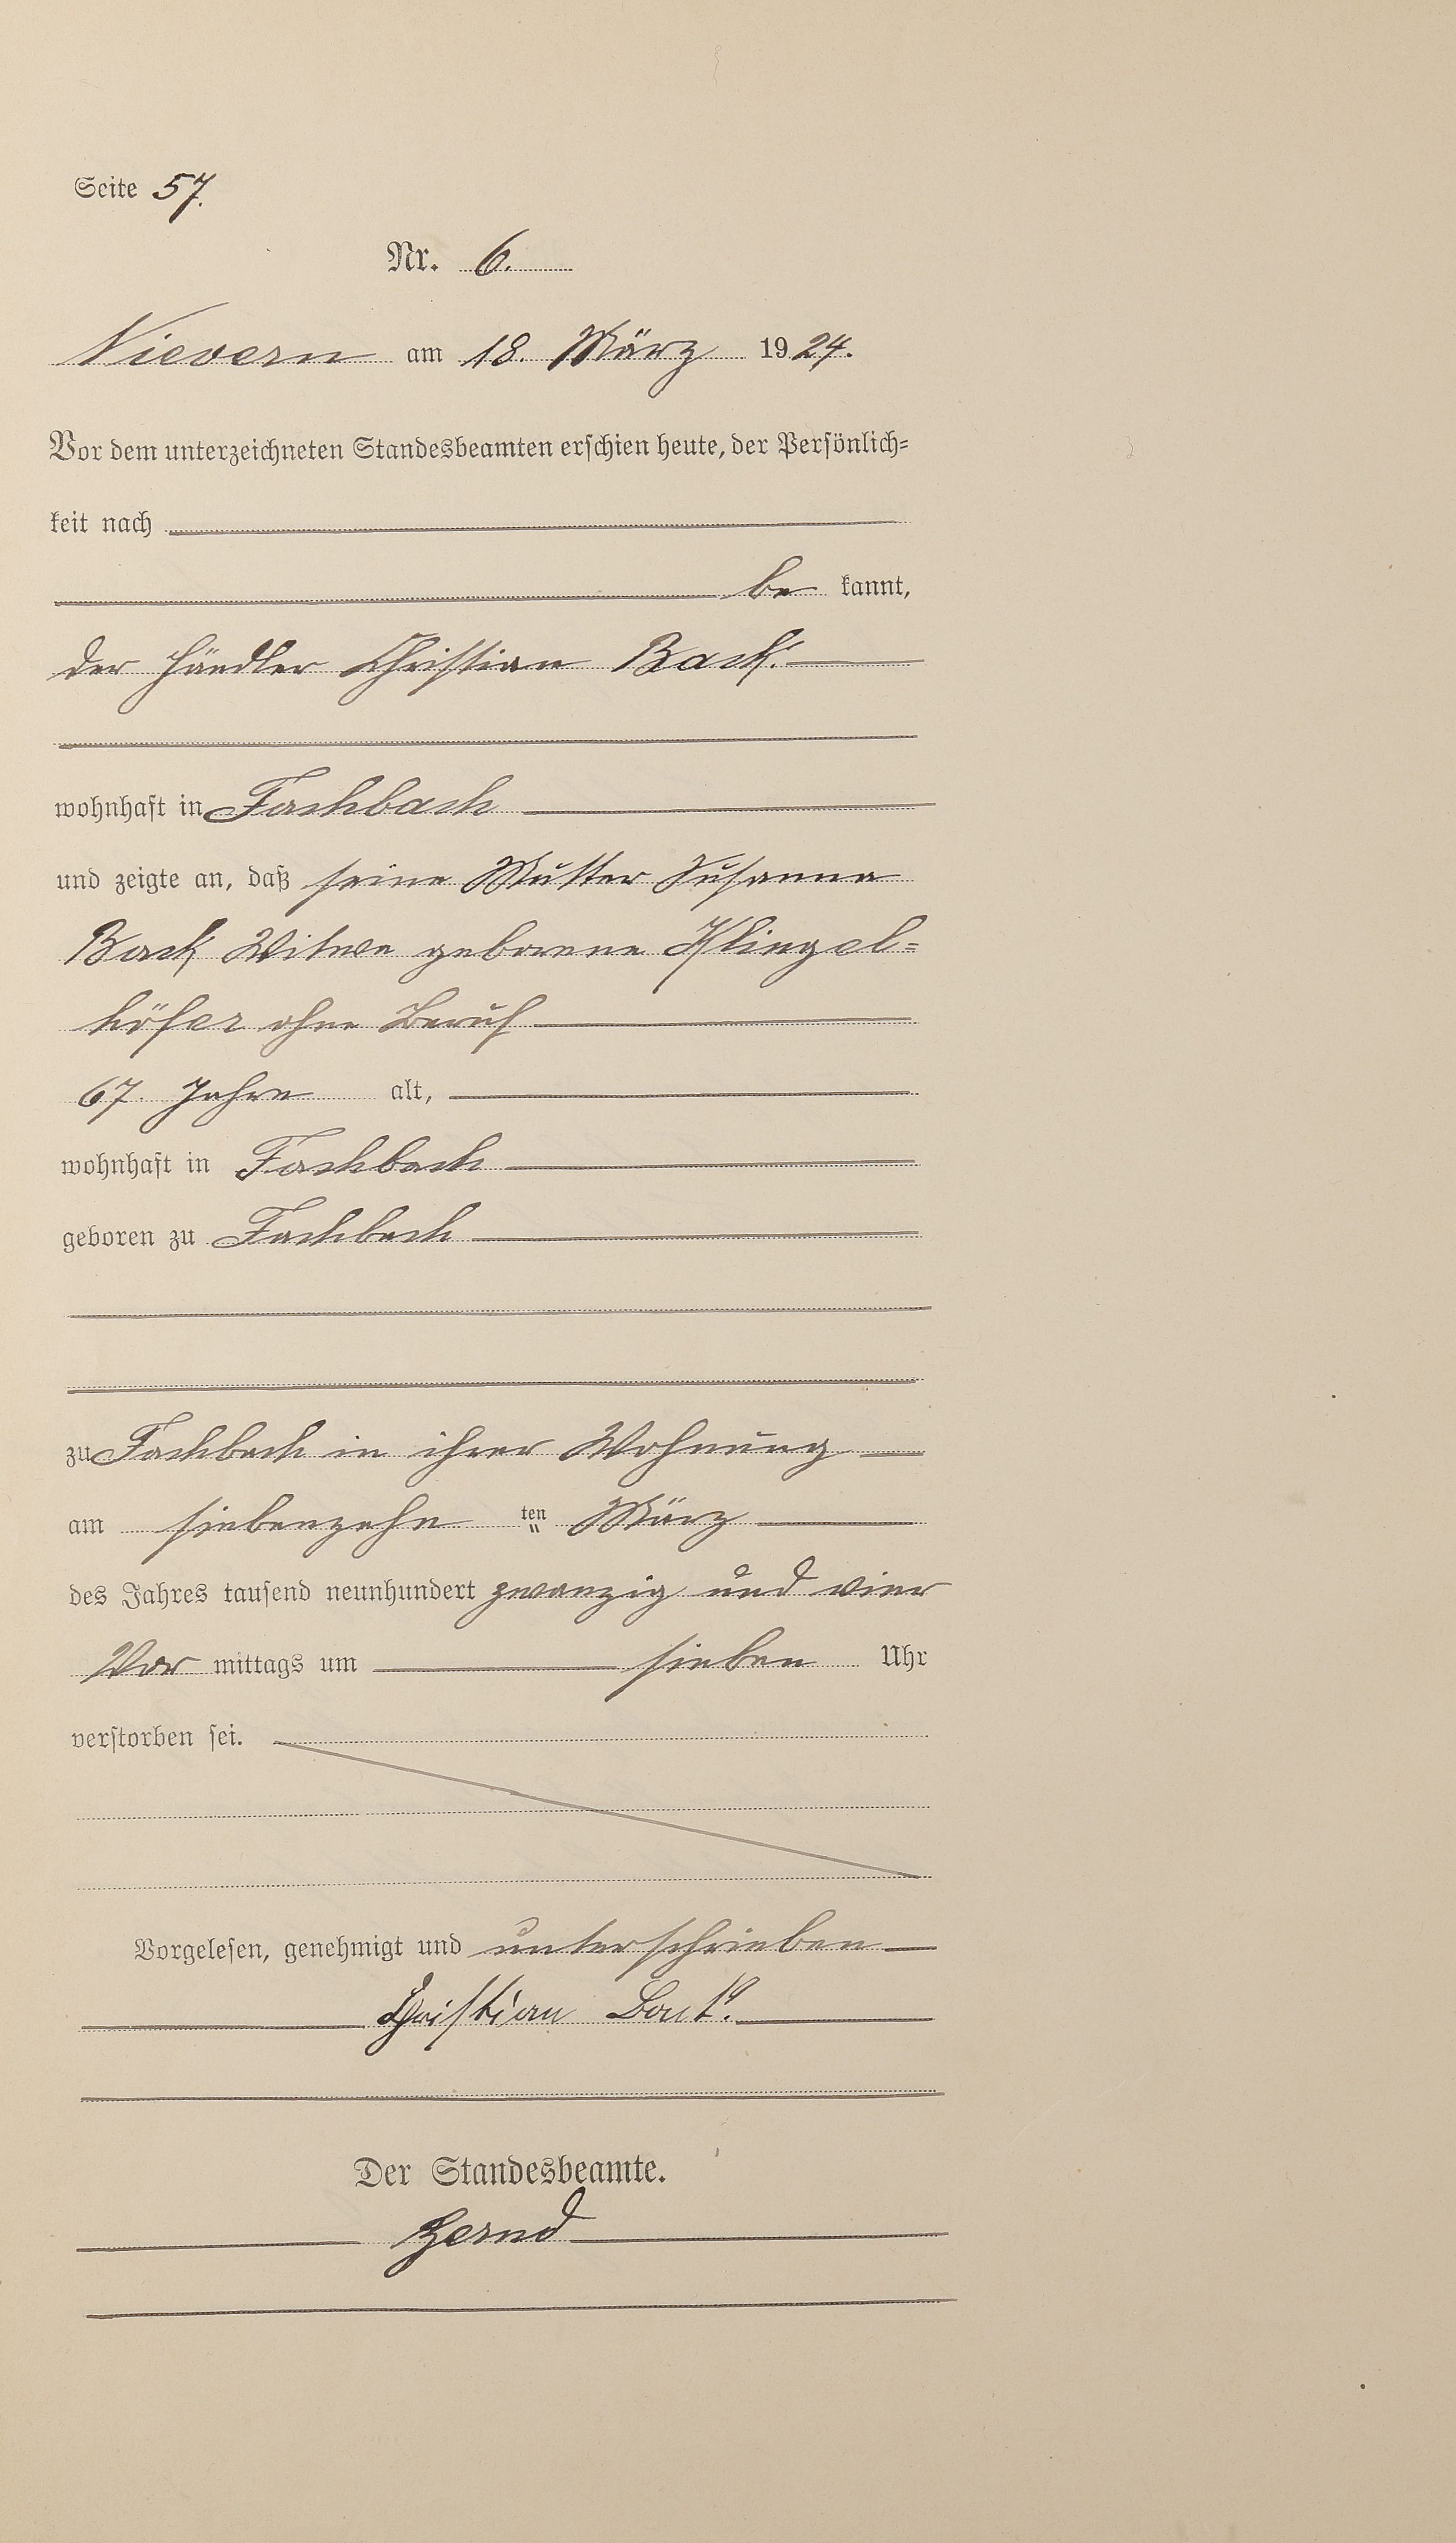 Seite 57.
Nr. 6.
Nievern am 18. März 1924.
Vor dem unterzeichneten Standesbeamten erschien heute, der Persönlich=
keit nach
be kannt,
der Händler Christian Back.
wohnhaft in Fachbach
und zeigte an, daß seine Mutter Susanna
Back Witwe geborene Klingel=
höfer ohne Beruf
67. Jahre alt,
wohnhaft in Fachbach
geboren zu Fachbach
zu Fachbach in ihrer Wohnung
am siebenzehn ten März
des Jahres tausend neunhundert zwanzig und vier
Vor mittags um sieben Uhr
verstorben sei.
Vorgelesen, genehmigt und unterschrieben
Christian
Der Standesbeamte.